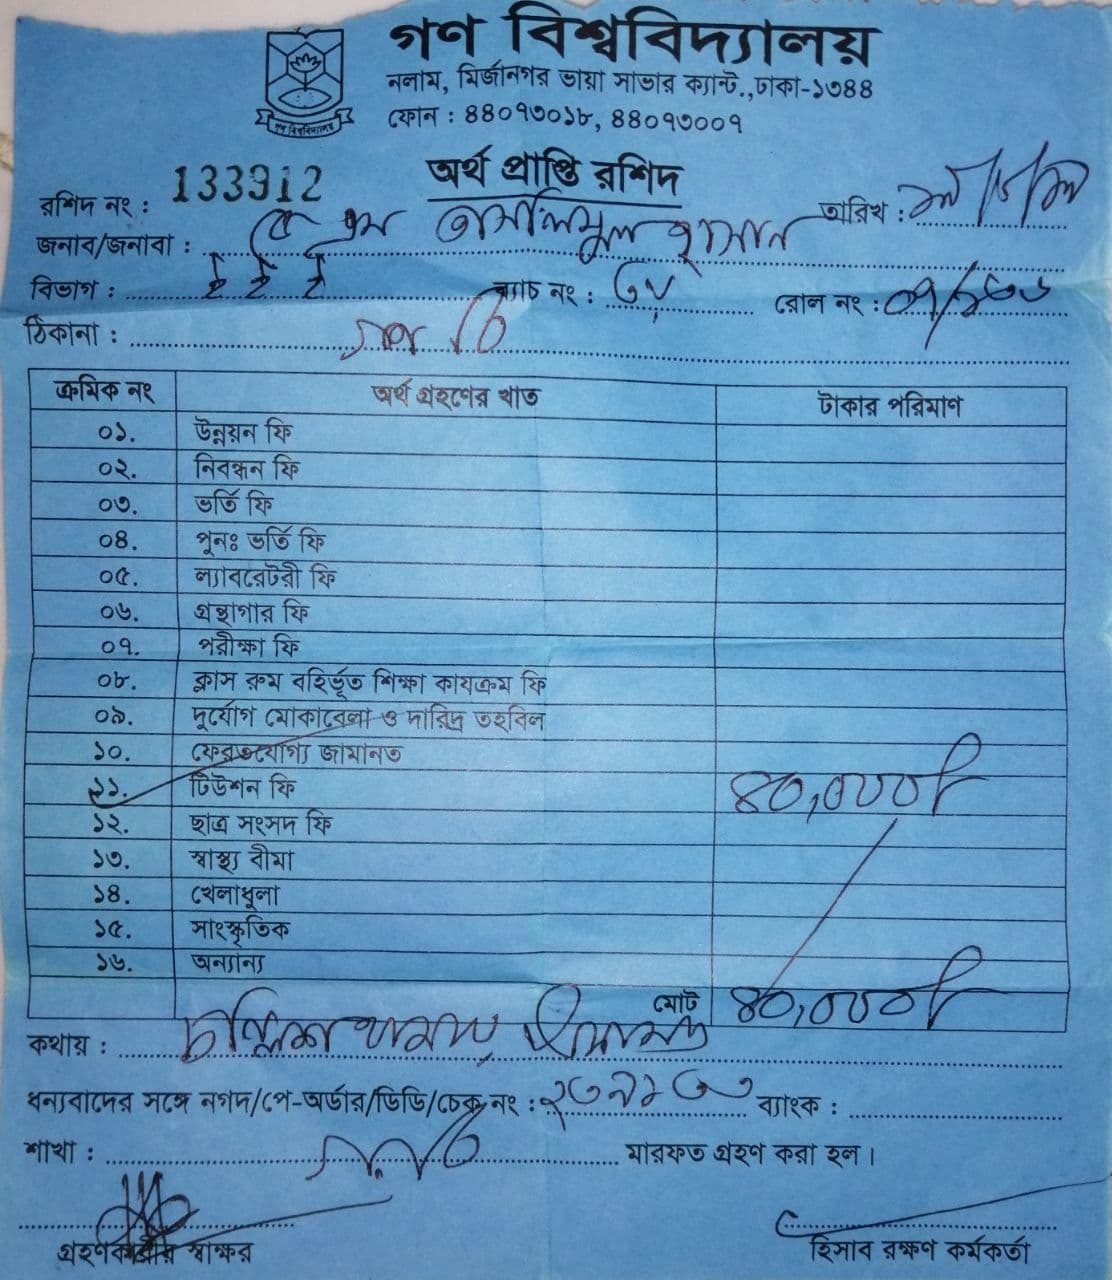 গণ বিশ্ববিদ্যালয়
নলাম, মির্জানগর ভায়া সাভার ক্যান্ট.,ঢাকা-১৩৪৪
ফোন : ৪৪০৭৩০১৮, ৪৪০৭৩০০৭
গণ বিশ্ববিদ্যালয়
অর্থ প্রাপ্তি রশিদ
রশিদ নং : 133912 তারিখ :
জনাব/জনাবা : কে এম তাসলিমুল হাসান
বিভাগ : ই ই ই ব্যাচ নং : রোল নং :
ঠিকানা :
ক্রমিক নং অর্থ গ্রহণের খাত টাকার পরিমাণ
০১. উন্নয়ন ফি
০২. নিবন্ধন ফি
০৩. ভর্তি ফি
০৪. পুনঃ ভর্তি ফি
০৫. ল্যাবরেটরী ফি
০৬. গ্রন্থাগার ফি
০৭. পরীক্ষা ফি
০৮. ক্লাস রুম বহির্ভূত শিক্ষা কাযক্রম ফি
০৯. দুর্যোগ মোকাবেলা ও দারিদ্র তহবিল
১০. ফেরতযোগ্য জামানত
১১. টিউশন ফি ৪০,০০০/-
১২. ছাত্র সংসদ ফি
১৩. স্বাস্থ্য বীমা
১৪. খেলাধুলা
১৫. সাংস্কৃতিক
১৬. অন্যান্য
মোট ৪০,০০০/-
কথায় : চল্লিশ হাজার টাকা মাত্র
ধন্যবাদের সঙ্গে নগদ/পে-অর্ডার/ডিডি/চেক নং : ব্যাংক :
শাখা : মারফত গ্রহণ করা হল।
গ্রহণকারীর স্বাক্ষর হিসাব রক্ষণ কর্মকর্তা